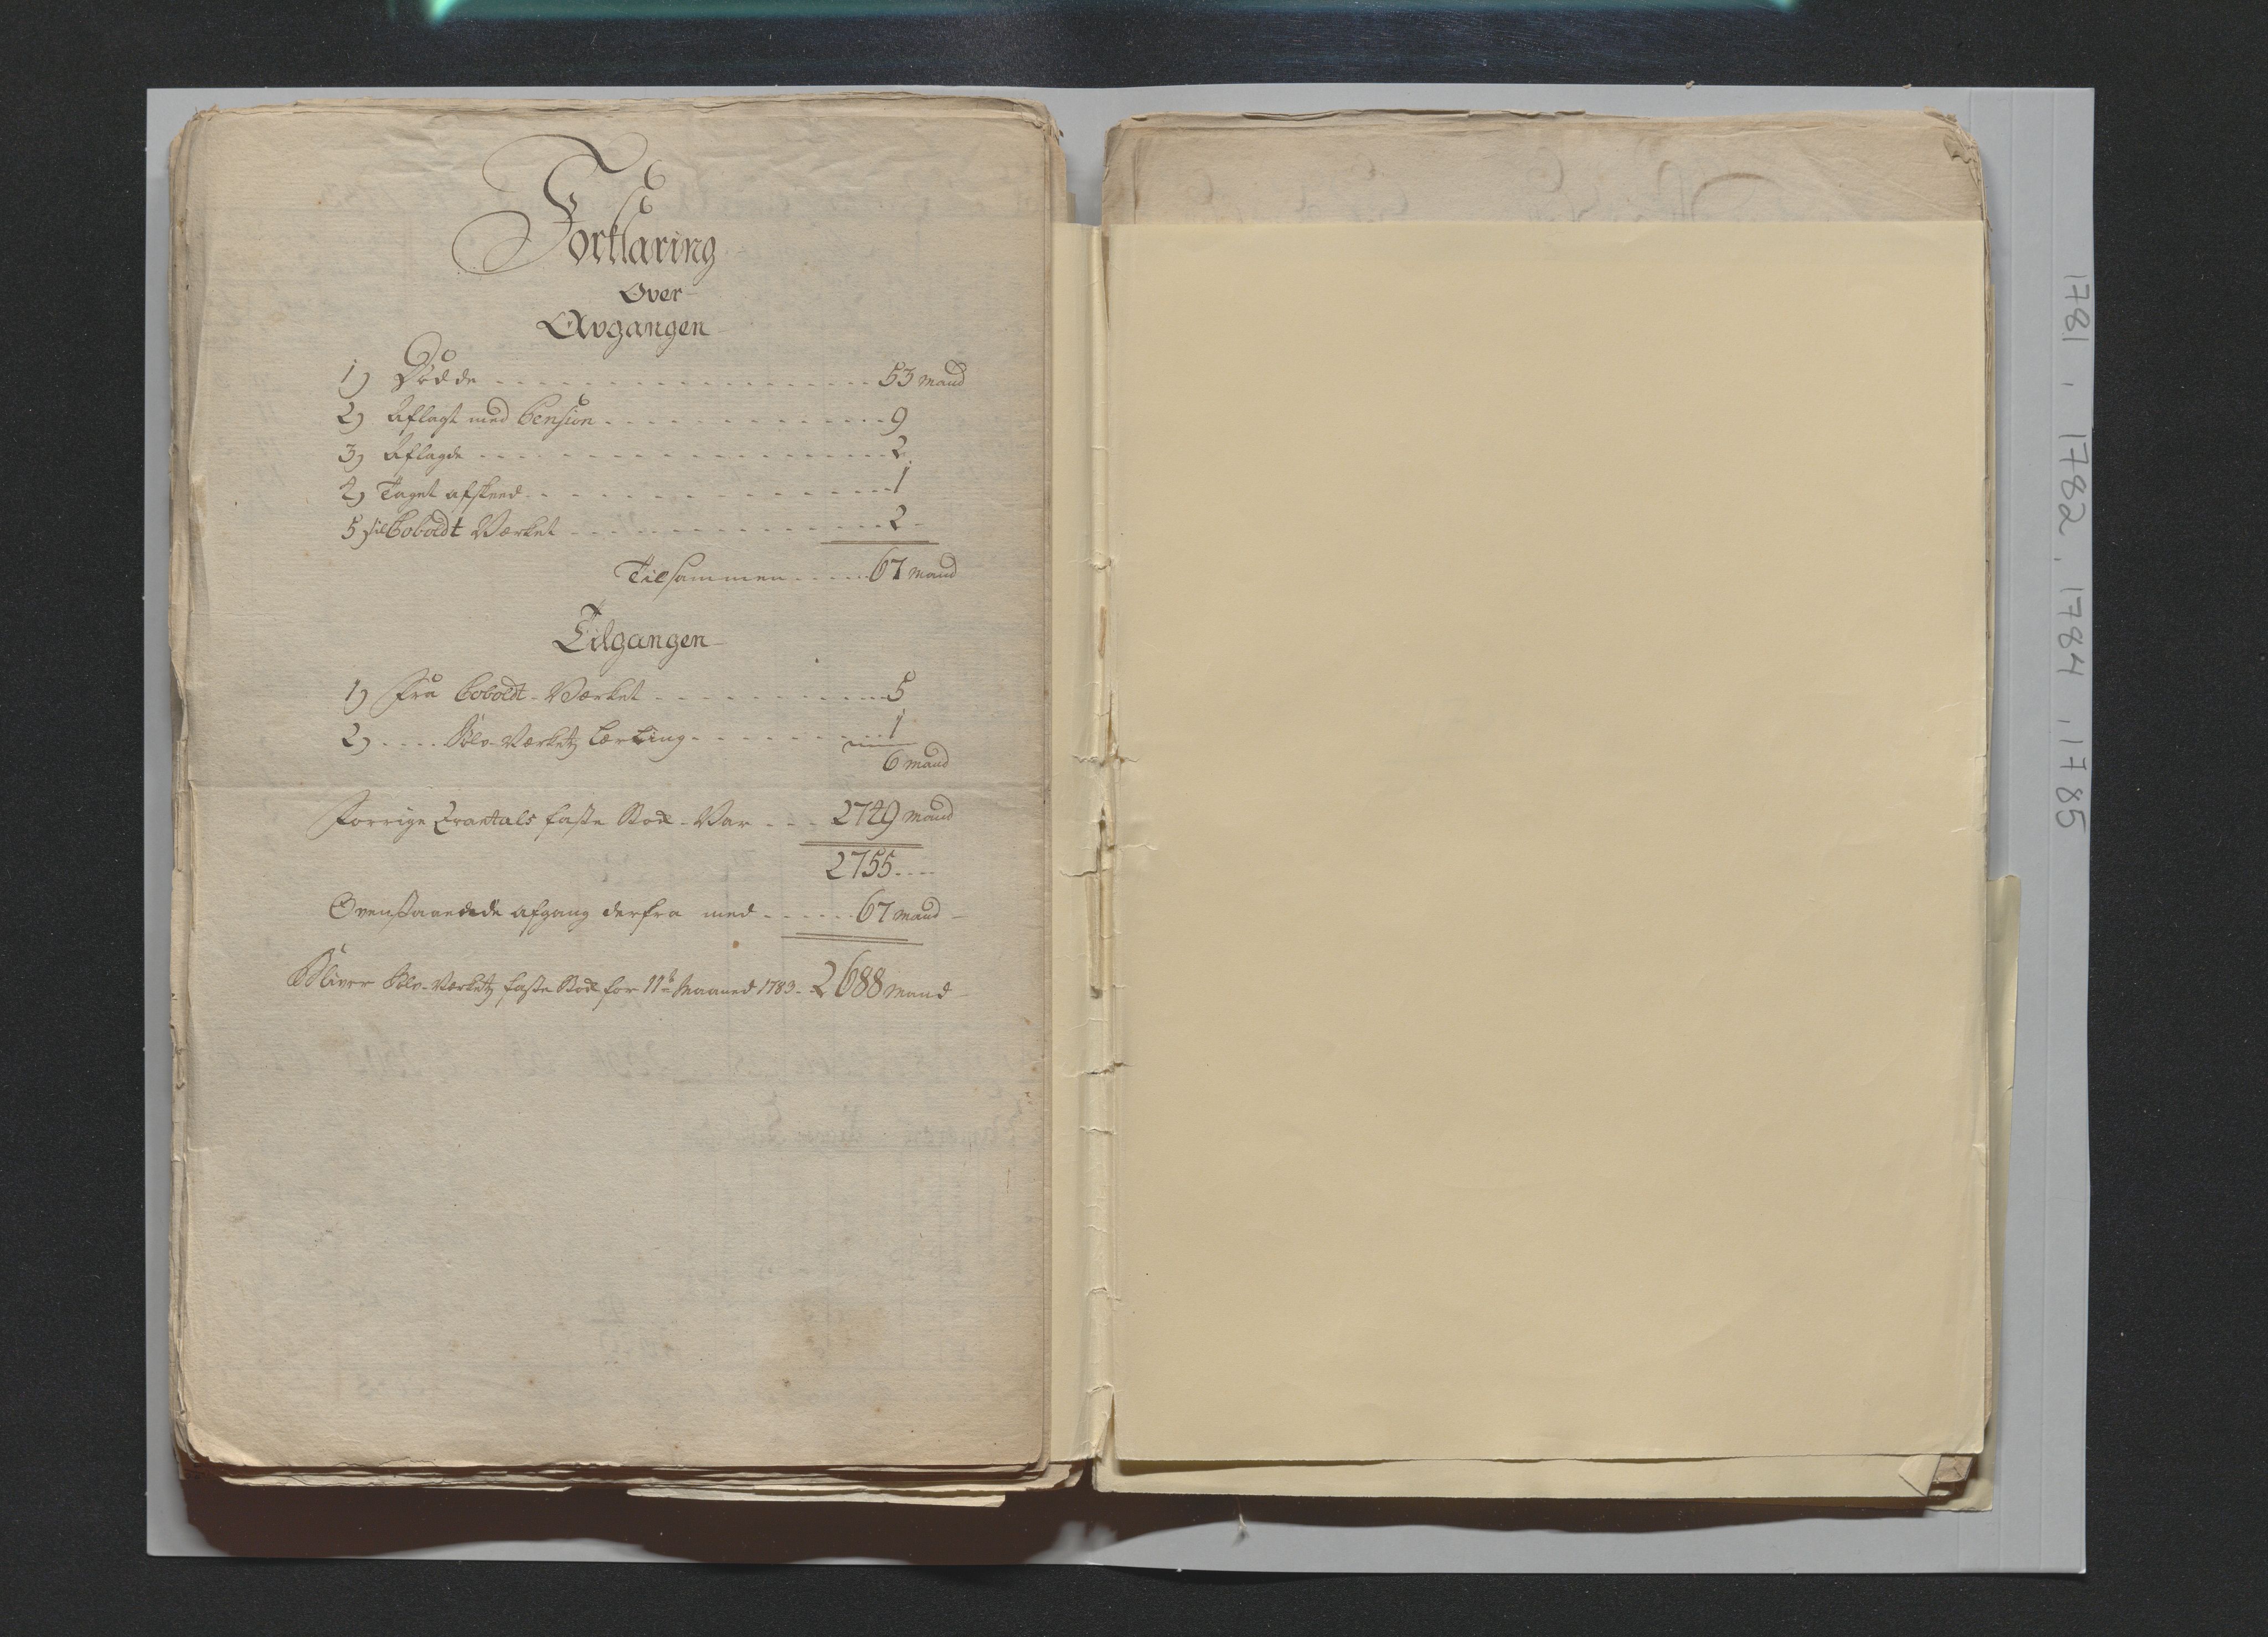 Forklaring
Over
Avgangen
1) Dødde 53 Mand
2) Aflagt med Pension 9
3) Aflagde 2
4) Taget afskeed 1
5) til Coboldt Værket 2
Tilsammen 67 Mand
Tilgangen
1) Fra Coboldt-Værket 5
2) Sølv-Værketz Lærling 1
6 Mand
Forrige Qvartals faste Stok-Var 2749 Mand
2755
Ovenstaaende afgang derfra med 67 Mand
Bliver Sølv-Værketz faste Stok for 11te Maaned 1783 2688 Mand
1781, 1782, 1784, 1785